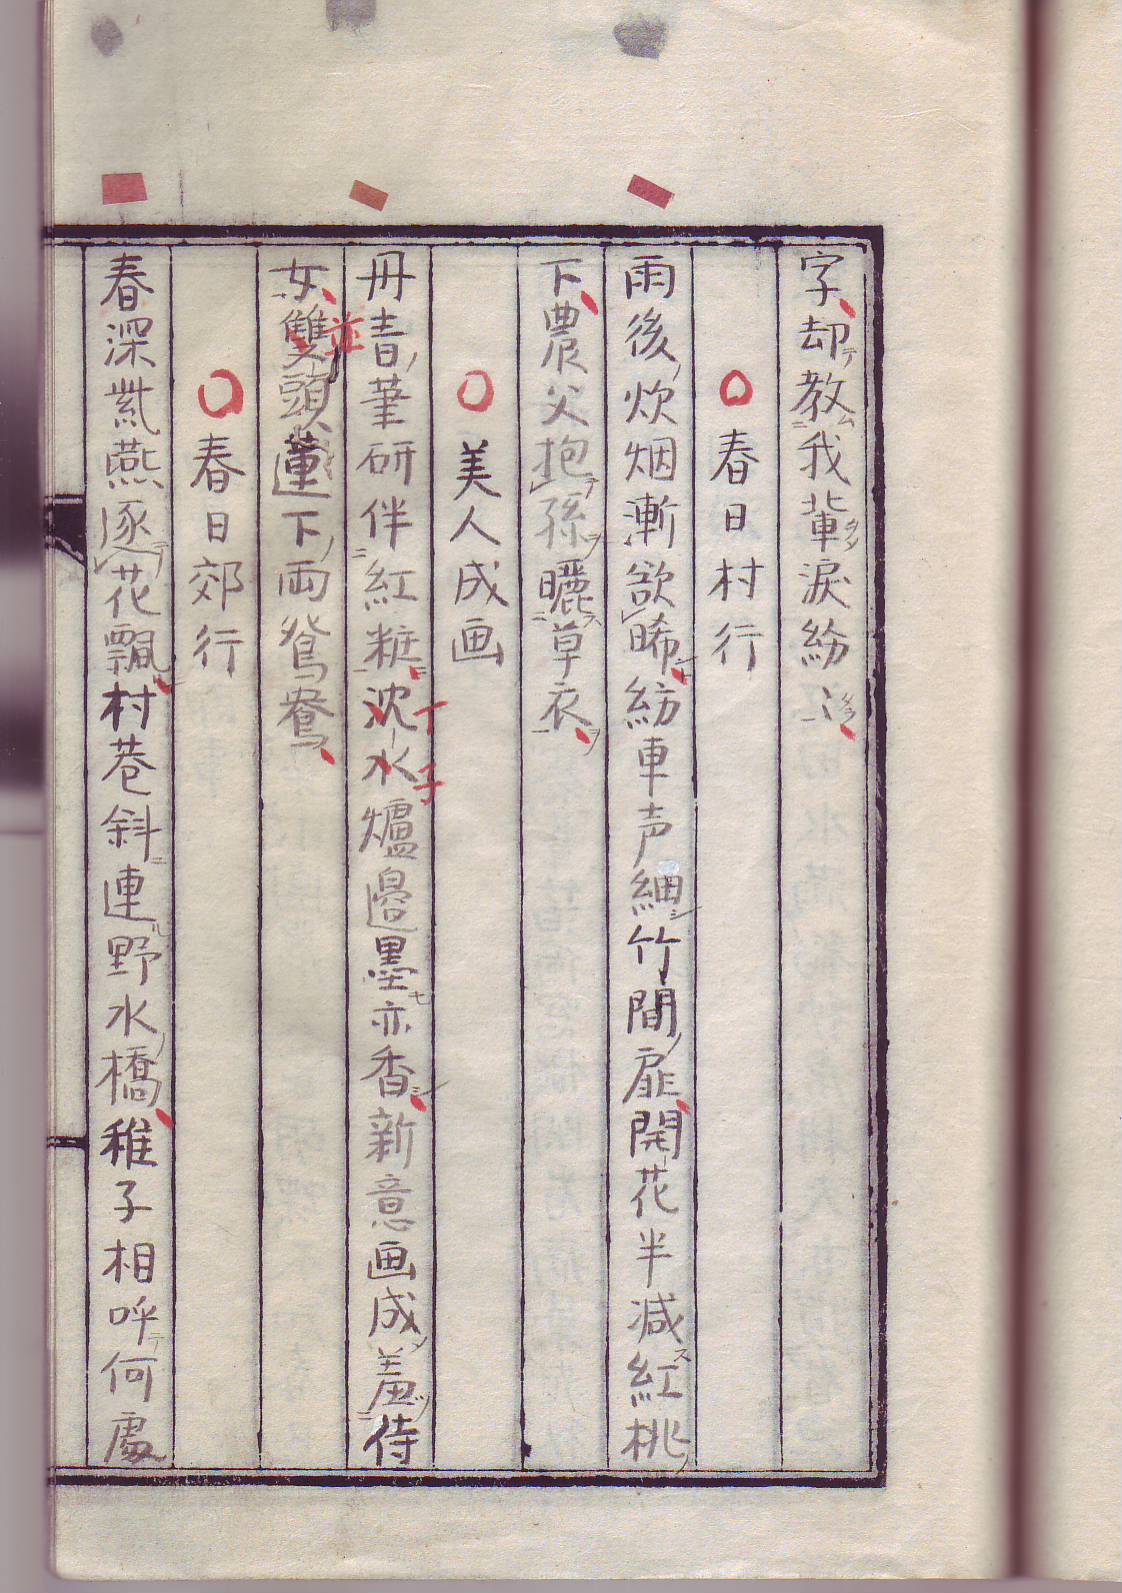 字却教我輩淚紛〻
春日村行
雨後炊烟漸欲晞紡車声細竹間扉開花半減紅桃
下農父抱孫曬草衣
美人成画
丹青筆研伴紅粧沈水爐邉墨亦香新意画成羞侍
女雙頭蓮下両鴛鴦
春日郊行
春深紫燕逐花飄村巷斜連野水橋稚子相呼何處